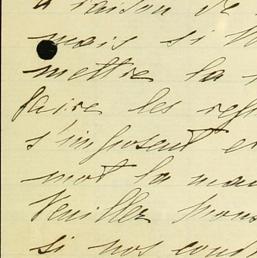 à raison de
mais si
mettre la
faire les
s'imposent et
mot la
Veuillez
si nos